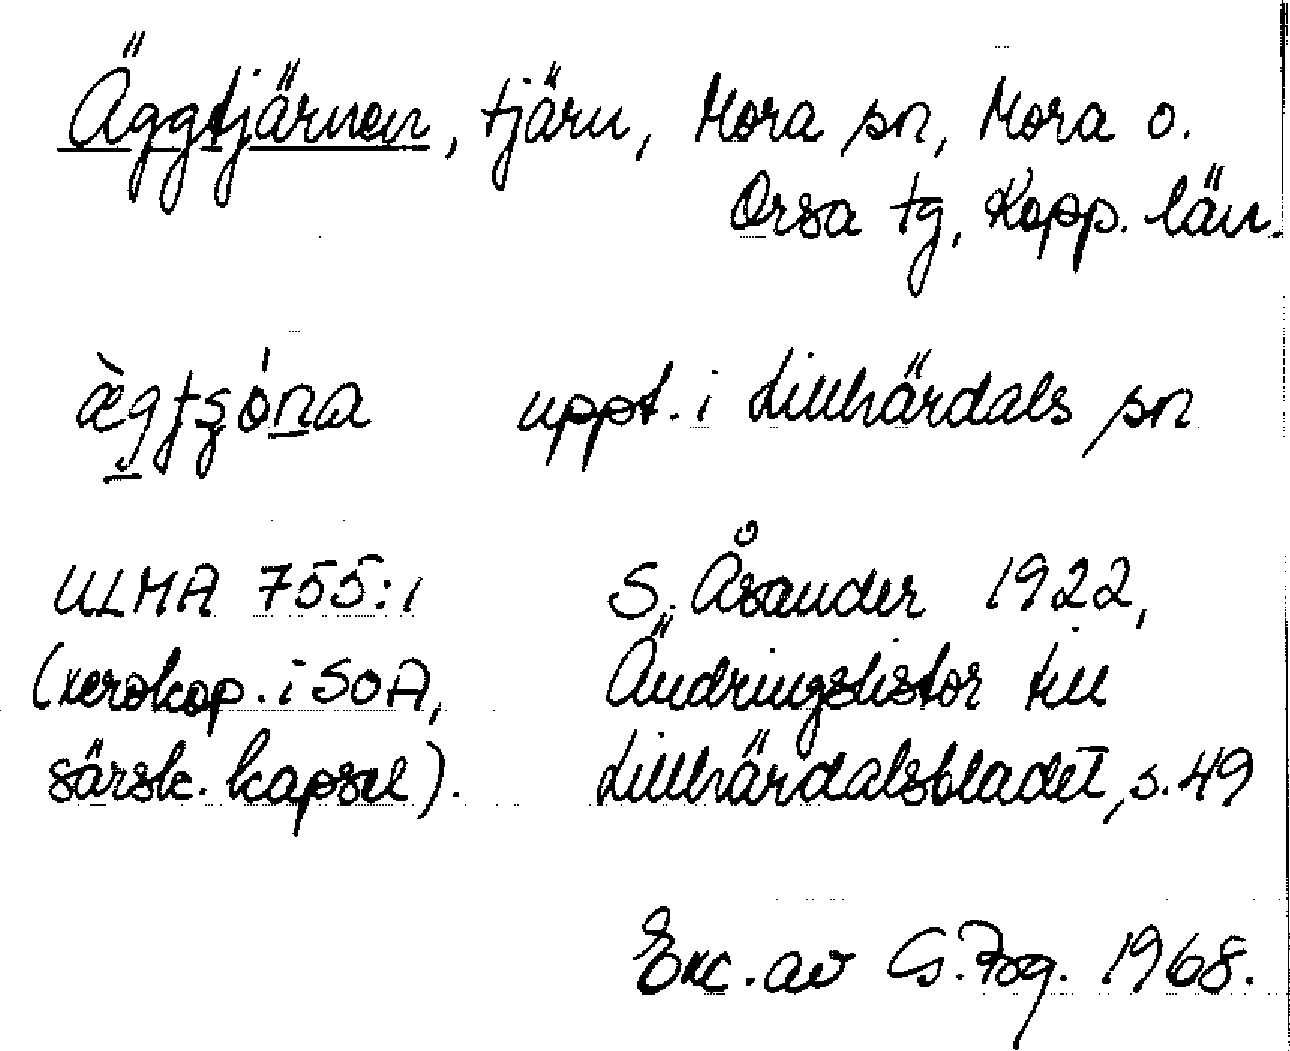 Äggtjärnen, tjärn, Mora sn, Mora o.
Orsa tg, Kopp. län.
uppt. i Lillhärdals sn
ULMA 755:1
S. Åsander 1922,
(xerokop. i SOA,
Ändringslistor till
särsk. kapsel).
Lillhärdalsbladet, s. 49
Exc. av G. Fog. 1968.